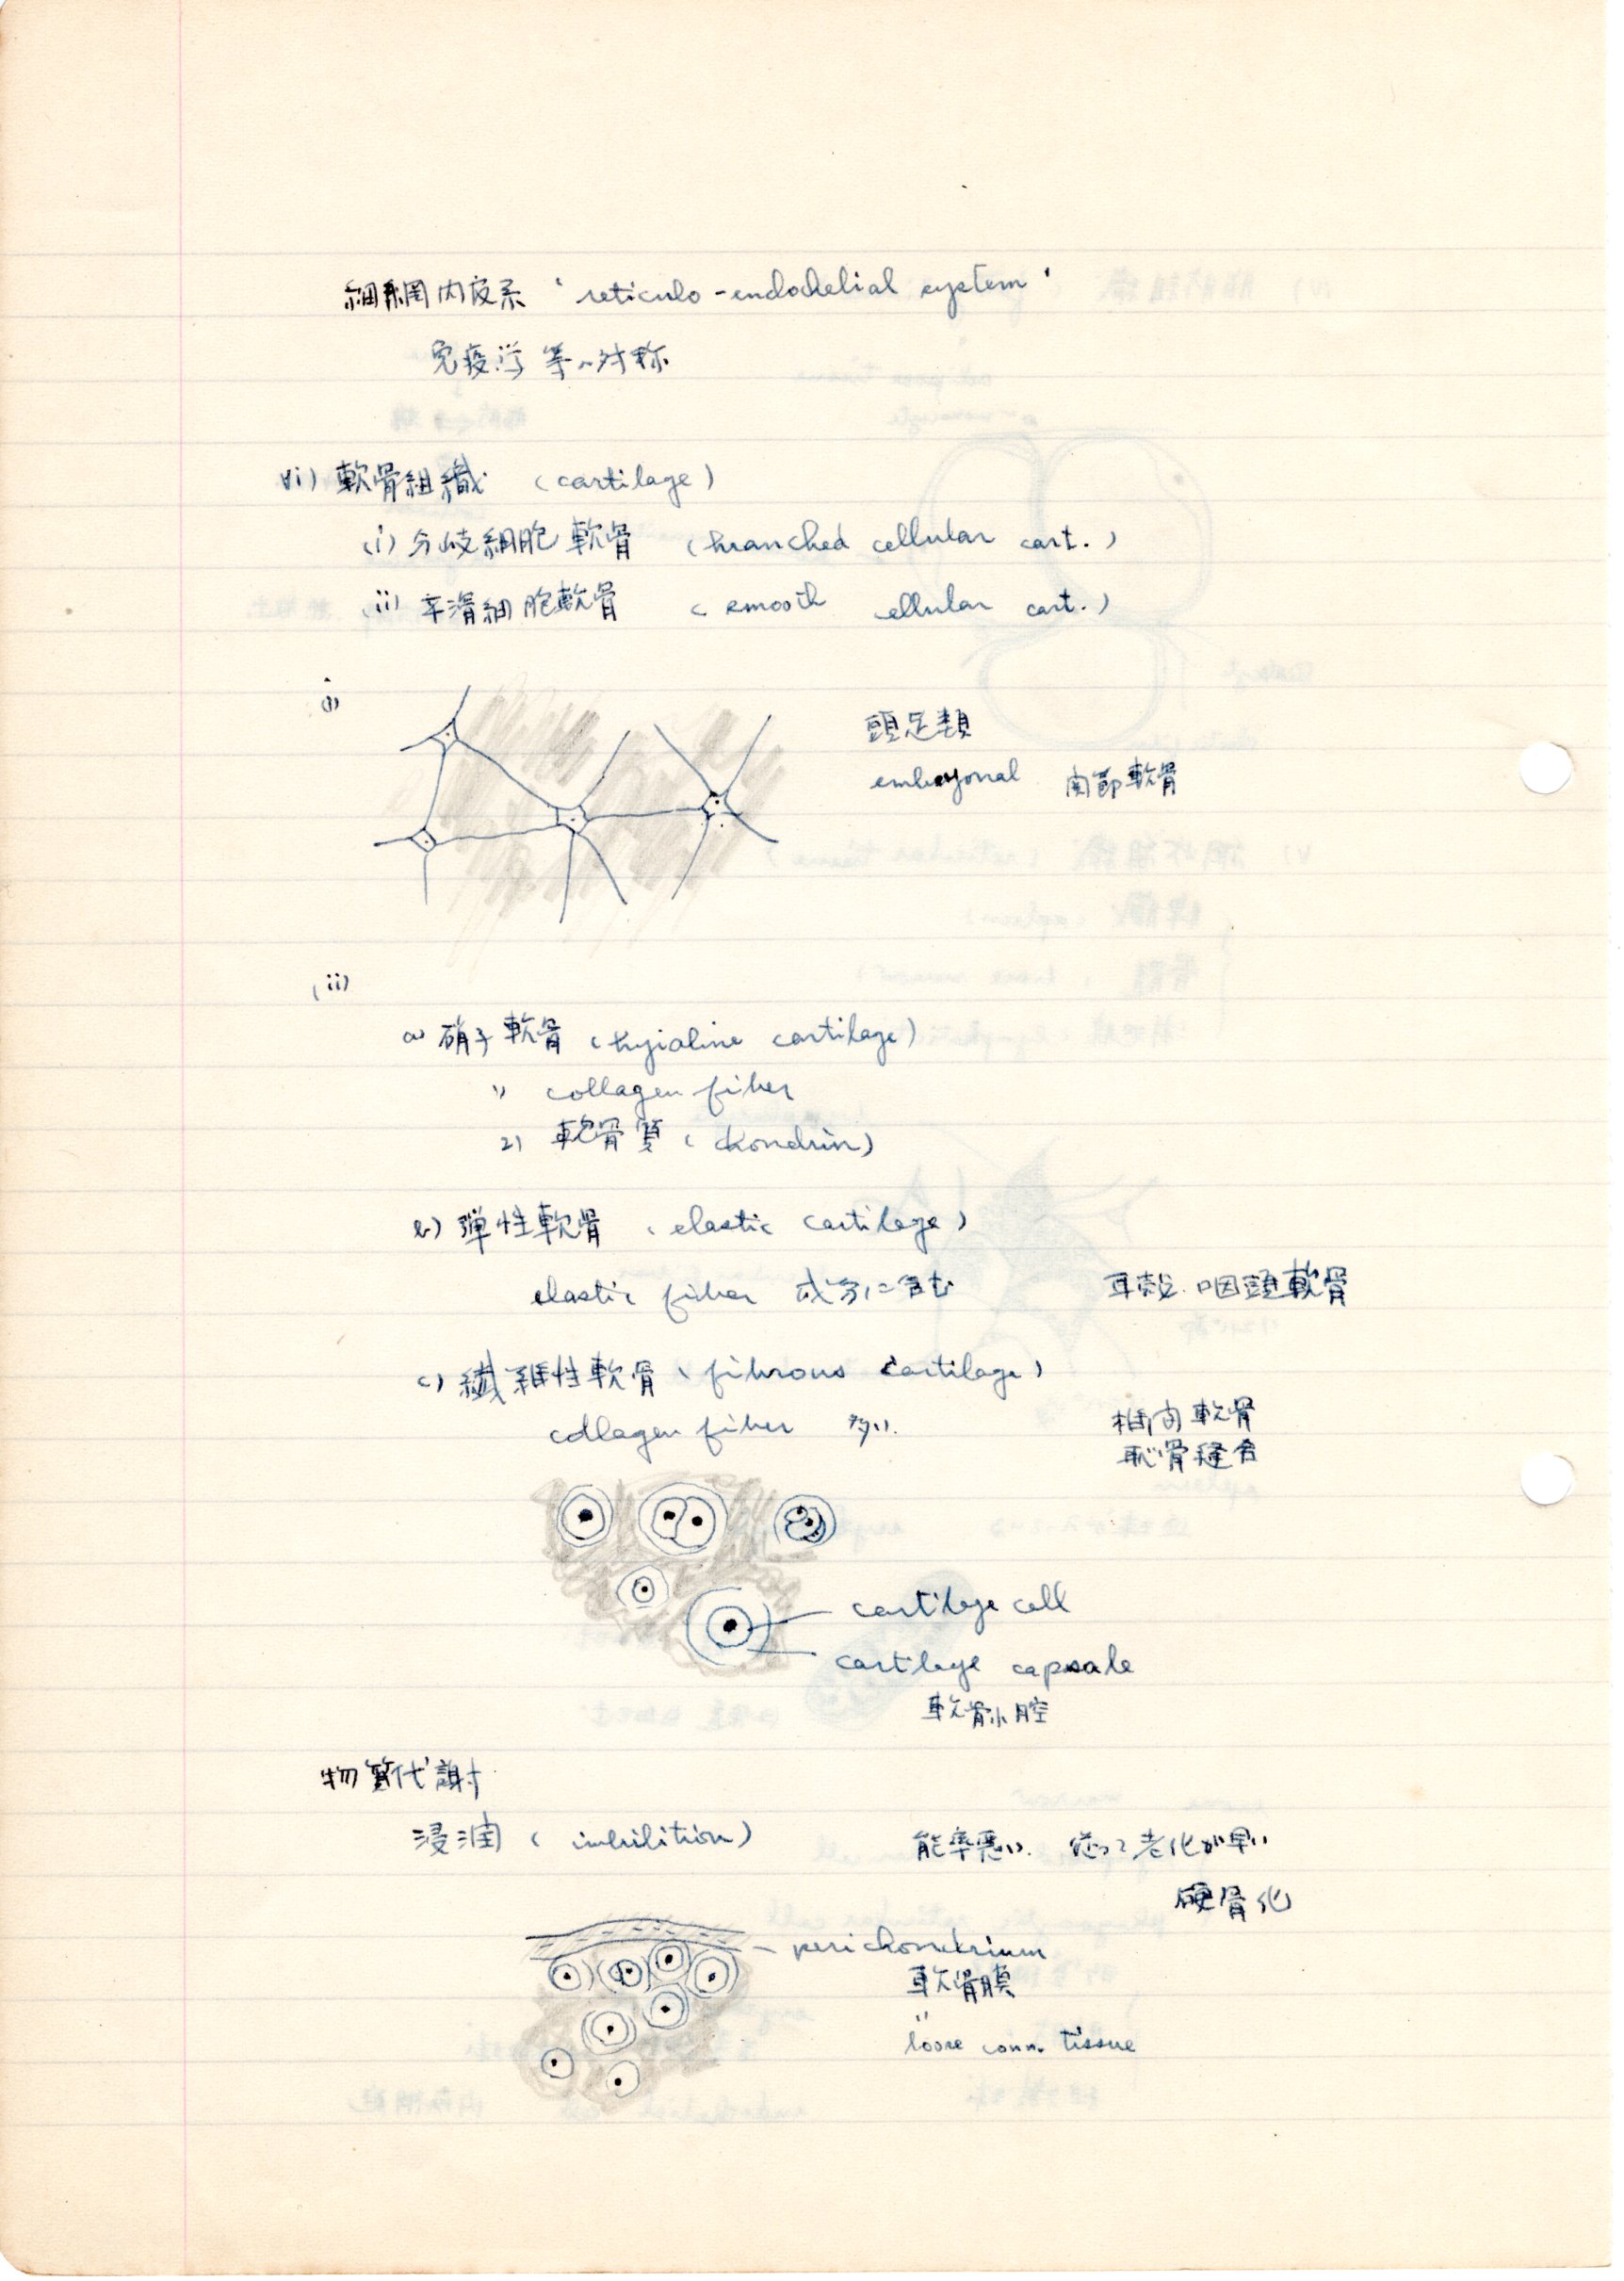 細網内皮系 'reticulo-endothelial system'
免疫学等の対称
vi) 軟骨組織 (cartilage)
(i) 分岐細胞軟骨 (branched cellular cart.)
(ii) 平滑細胞軟骨 (smooth cellular cart.)
(i)
頭足類
embryonal 関節軟骨
(ii)
a) 硝子軟骨 (hyialine cartilage)
1) collagen fiber
2) 軟骨質 (chondrin)
b) 弾性軟骨 (elastic cartilage)
elastic fiber 成分に含む 耳殻. 咽頭軟骨
c) 繊維性軟骨 (fibrous cartilage)
collagen fiber 多い. 椎間軟骨
恥骨縫合
cartilage cell
cartilage capsule
軟骨小腔
物質代謝
浸潤 (imbibition) 能率悪い. 従って老化が早い
硬骨化
perichondrium
軟骨膜
"
loose conn. tissue